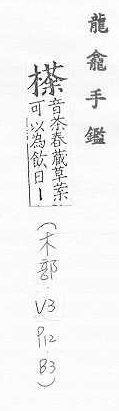 龍龕手鑑
𣘻
音茶春藏草葉
可以為飲日丨
(木部 V3 P12 B3)